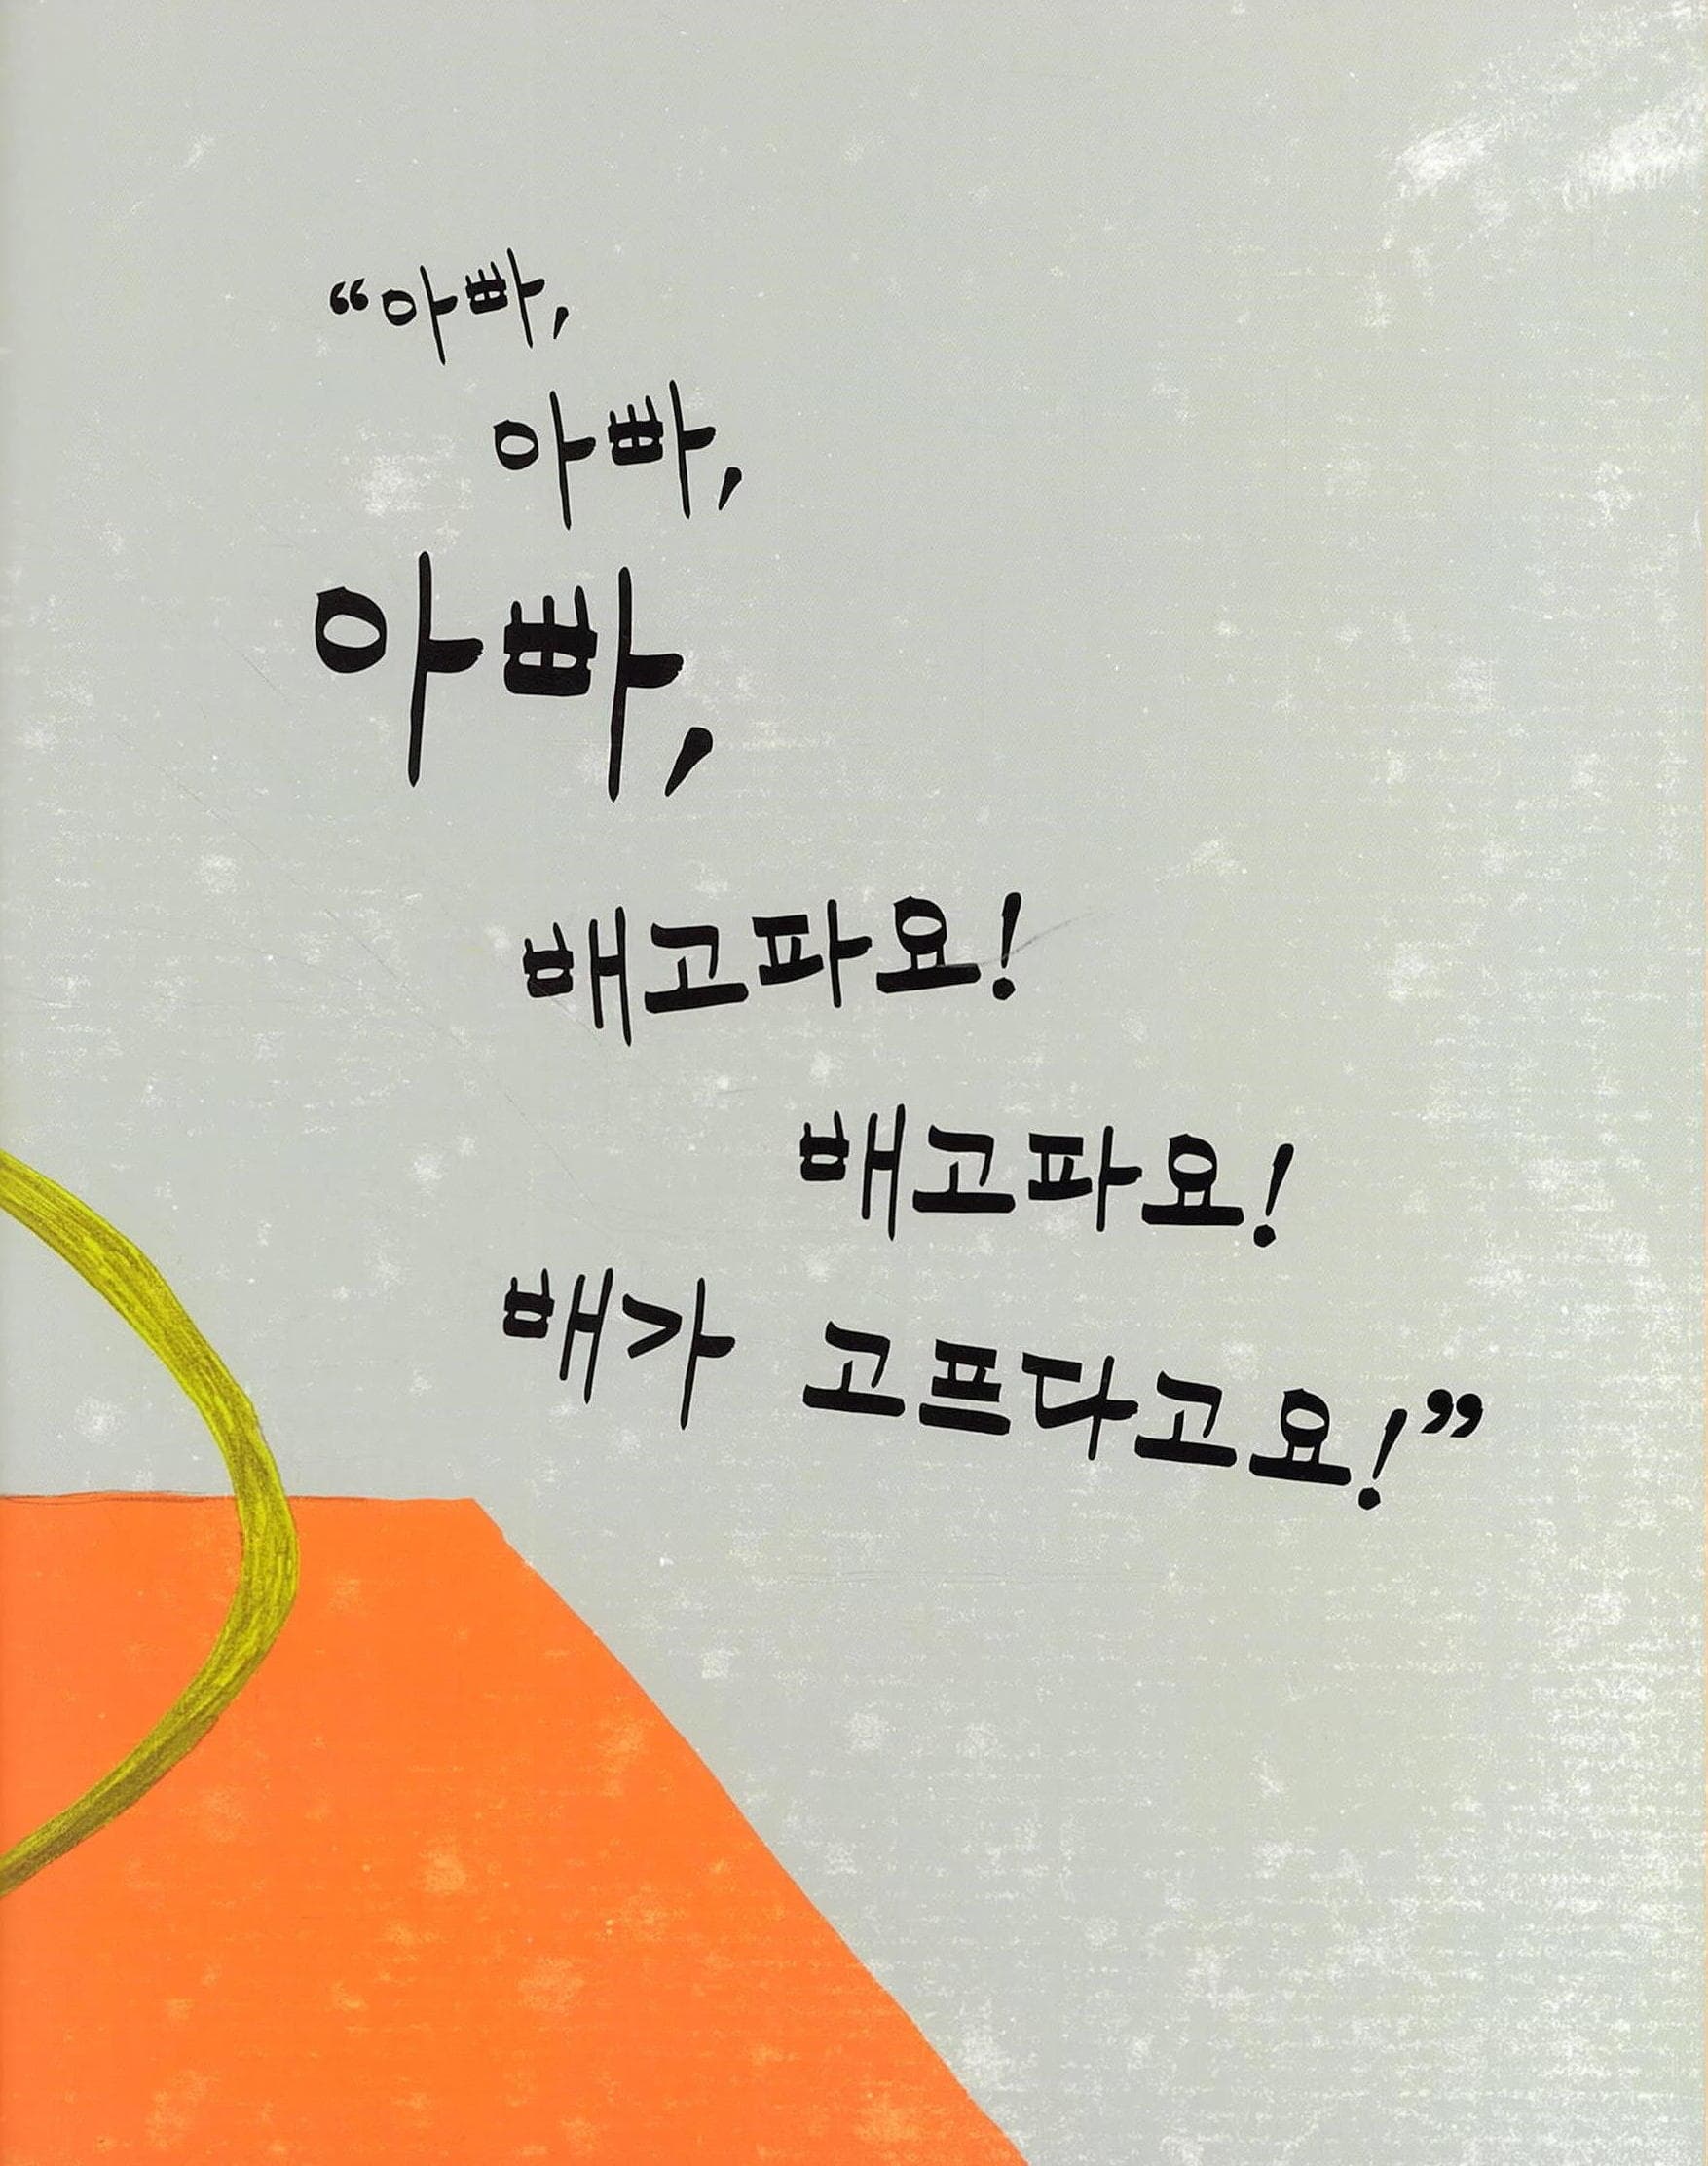 “아빠,
아빠,
아빠,
배고파요!
배고파요!
배가 고프다고요!”